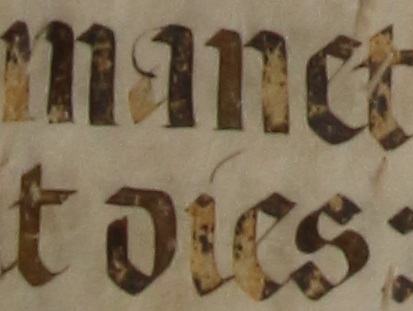 manet
t dies: